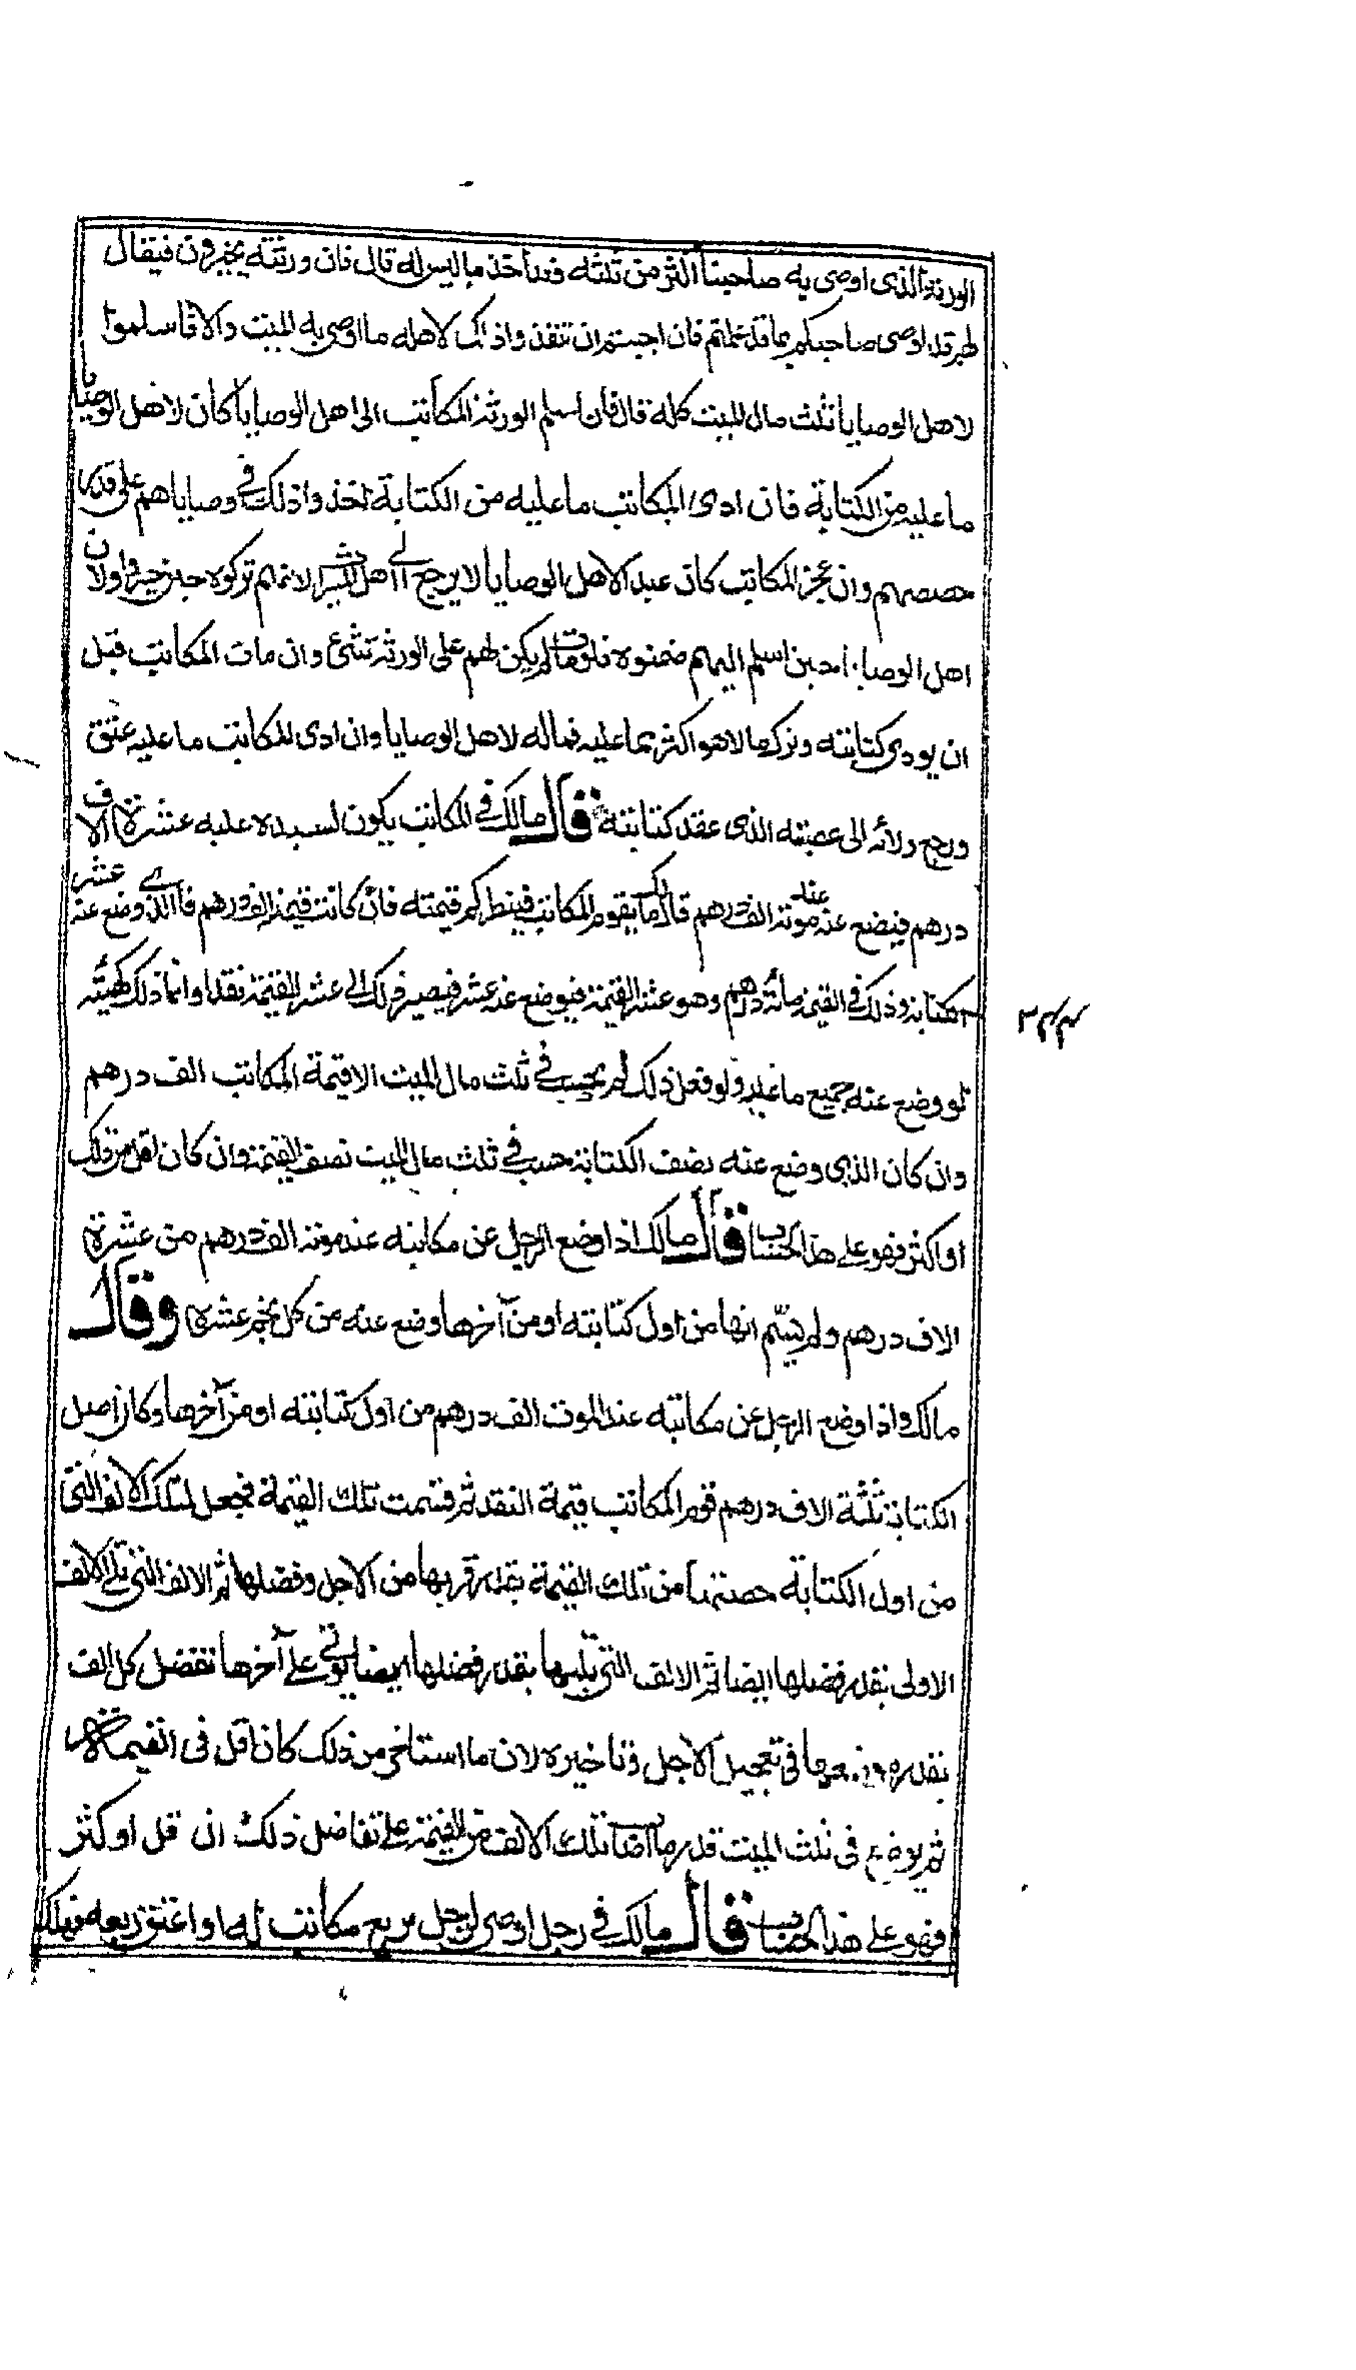 الورثة الذى اوصى به صاحبنا اكثر من ثلثه وقد اخذ ما ليس له قال فان ورثته يخيرون فيقال
لهم قد اوصى صاحبكم بما قد علمتم فان احببتم ان تنفذوا ذلك لاهله ما اوصى به الميت والا فاسلموا
لاهل الوصايا ثلث مال الميت كله قال فان اسلم الورثة المكاتب الى اهل الوصايا كان لاهل الوصايا
ما عليه من الكتابة فان ادى المكاتب ما عليه من الكتابة اخذوا ذلك فى وصاياهم على قدر
حصصهم وان عجز المكاتب كان عبدا لاهل الوصايا لا يرجع الى اهل الميراث لانهم تركوه حين خيروا ولان
اهل الوصايا حين اسلم اليهم ضمنوه فلو مات لم يكن لهم على الورثة شئ وان مات المكاتب قبل
ان يودى كتابته وترك مالا هو اكثر مما عليه فماله لاهل الوصايا وان ادى المكاتب ما عليه عتق
ورجع ولائه الى عصبته الذى عقد كتابته قال مالك فى المكاتب يكون لسيده عليه عشرة الاف
درهم فيضع عنه عند موته الف درهم قال مالك يقوم المكاتب فينظر كم قيمته فان كانت قيمته الف درهم فالذى وضع عنه عشر
الكتابة وذلك فى القيمة مائة درهم وهو عشر القيمة فيوضع عنه عشر فيصير ذلك الى عشر القيمة نقدا وانما ذلك كهيئته
لو وضع عنه جميع ما عليه ولو فعل ذلك لم يحسب فى ثلث مال الميت الا قيمة المكاتب الف درهم
وان كان الذى وضع عنه نصف الكتابة حسب فى ثلث مال الميت نصف القيمة وان كان اقل من ذلك
او اكثر فهو على هذا الحساب قال مالك اذا وضع الرجل عن مكاتبه عند موته الف درهم من عشرة
الاف درهم ولم يسم انها من اول كتابته او من آخرها وضع عنه من كل نجم عشره وقال
مالك واذا وضع الرجل عن مكاتبه عند الموت الف درهم من اول كتابته او من آخرها وكان اصل
الكتابة ثلثة الاف درهم قوم المكاتب قيمة النقد ثم قسمت تلك القيمة فجعل لتلك الالف التى
من اول الكتابة حصتها من تلك القيمة بقدر قربها من الاجل وفضلها ثم الالف التى تلى الالف
الاولى بقدر فضلها ايضا ثم الالف التى تليها بقدر فضلها ايضا حتى يوتى على آخرها تفضل كل الف
بقدر موضعها فى تعجيل الاجل وتاخيره لان ما استاخر من ذلك كان اقل فى القيمة
ثم يوضع فى ثلث الميت قدر ما اصاب تلك الالف من القيمة على تفاضل ذلك ان قل او كثر
فهو على هذا الحساب قال مالك فى رجل اوصى لرجل بربع مكاتب له او اعتق ربعه فهلك